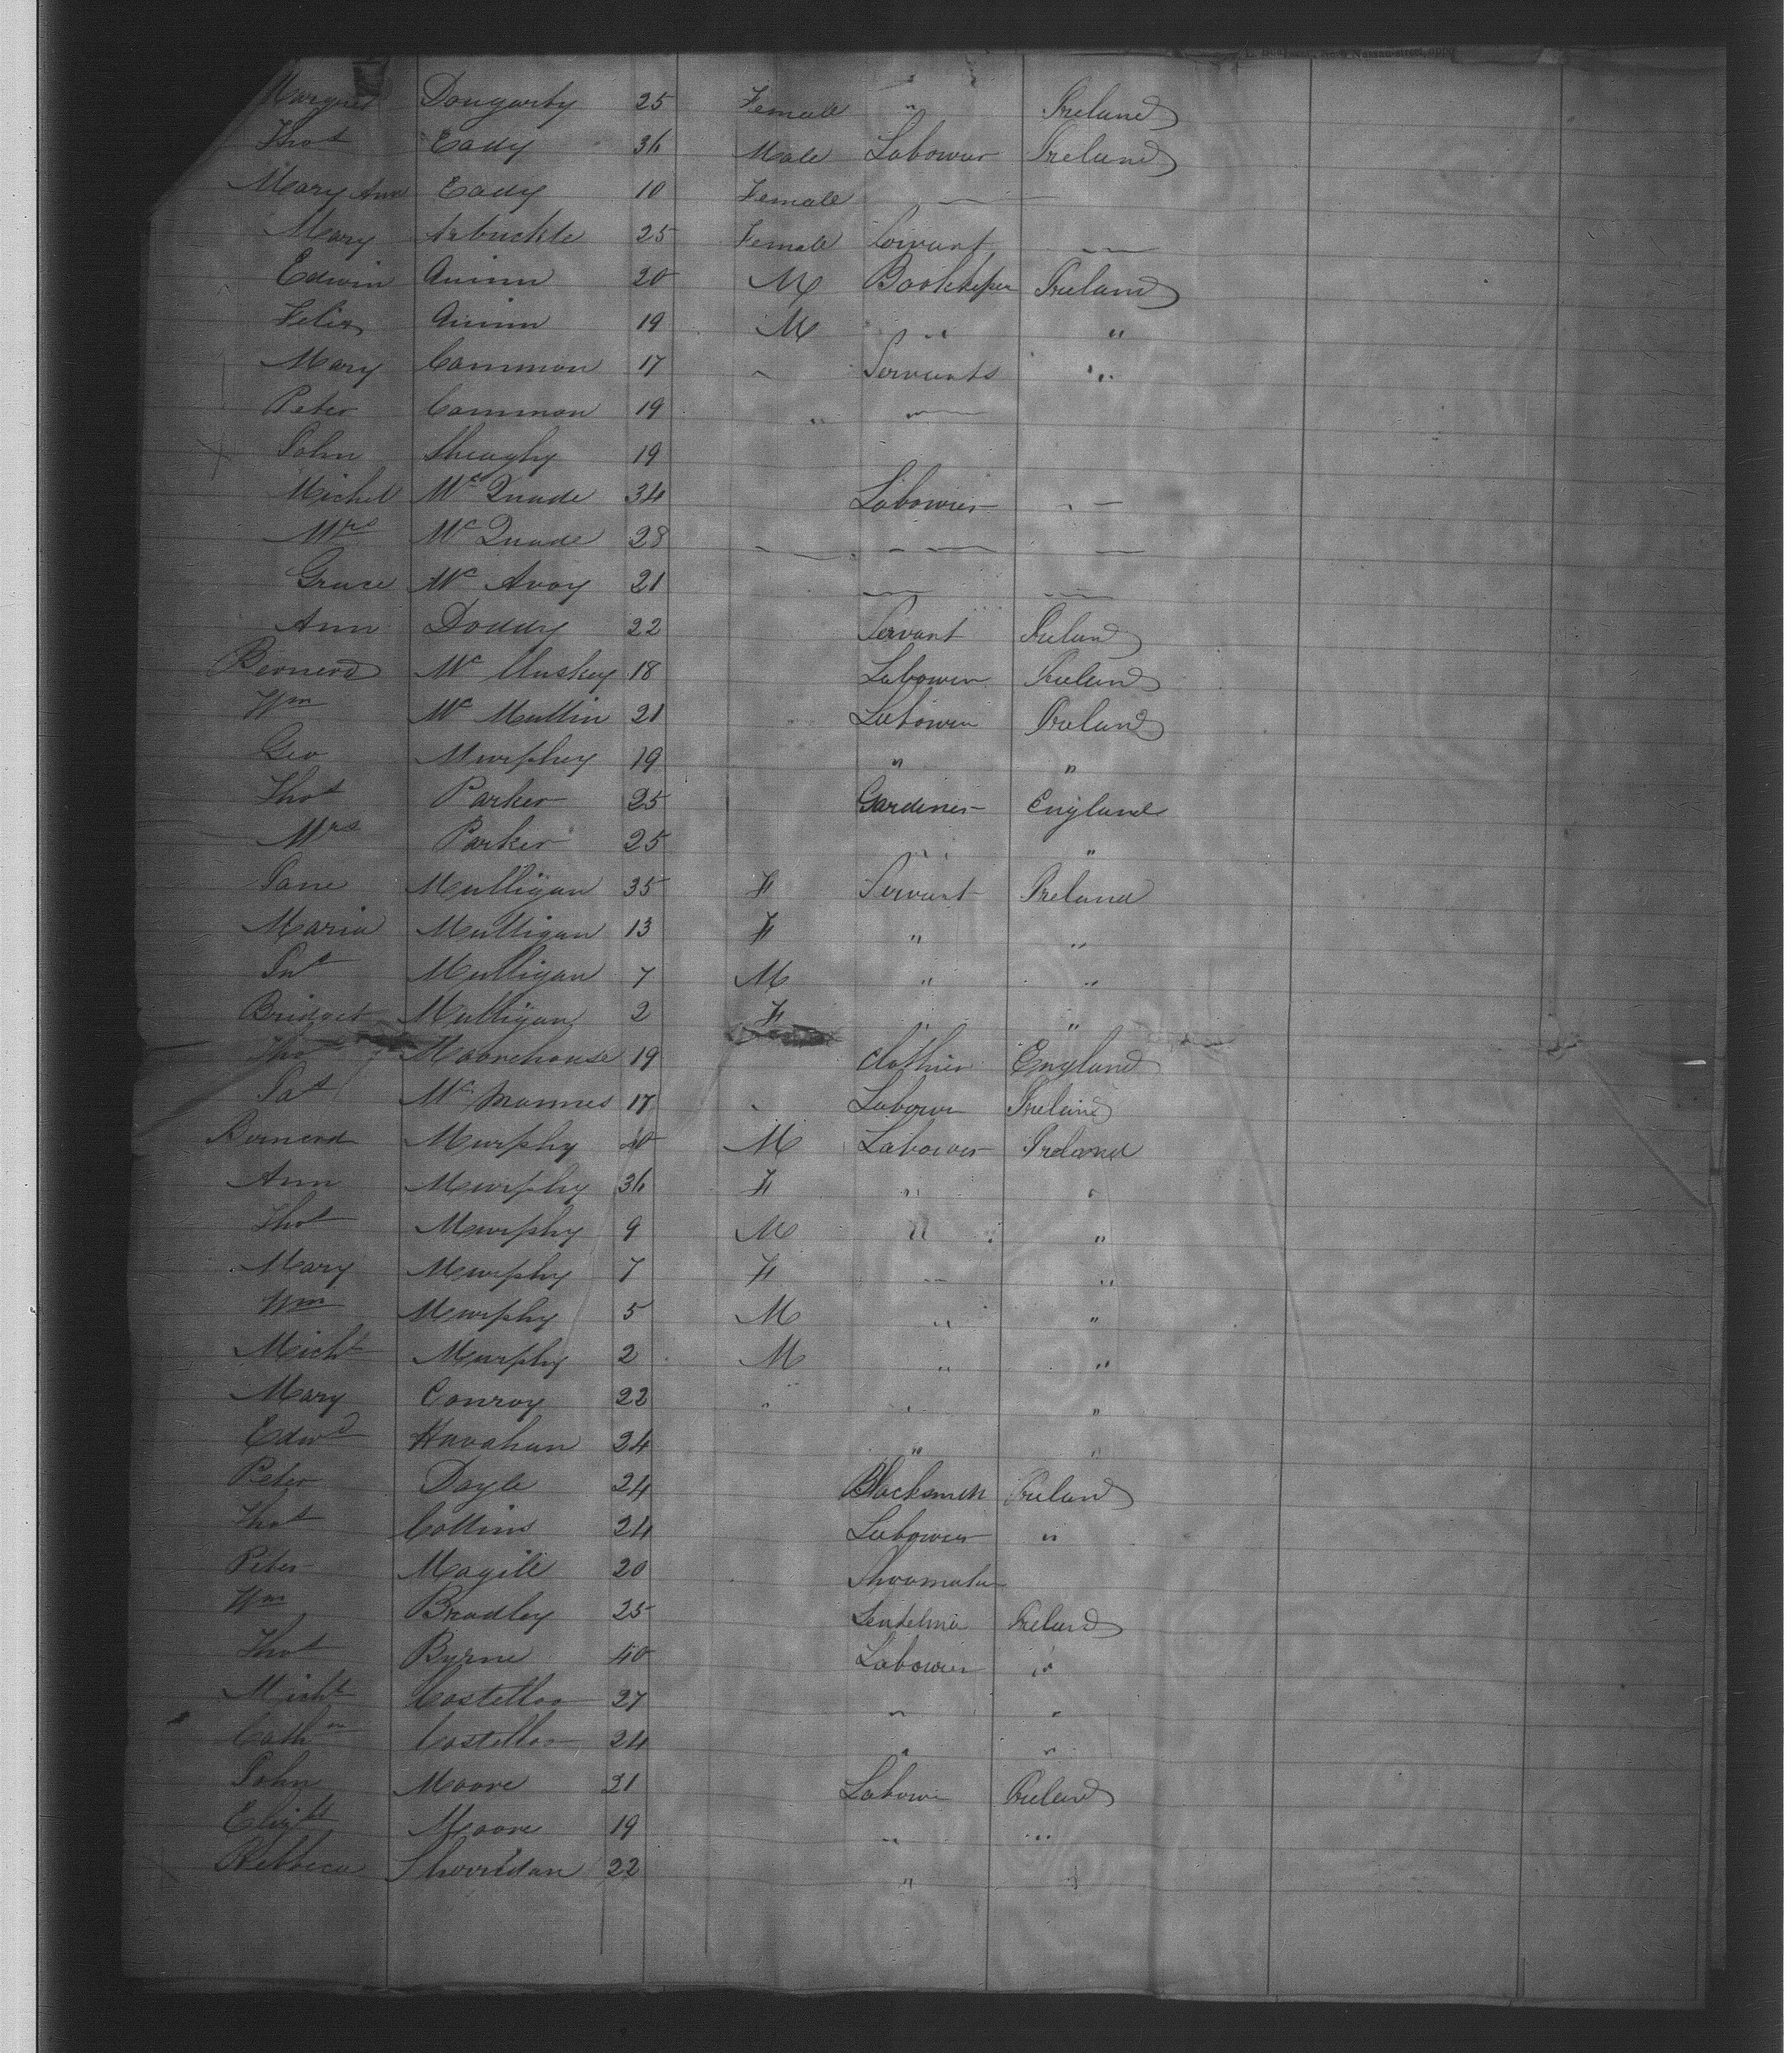 Margret Dougarty 25 Female " Ireland
Thos Eady 36 Male Labourer Ireland
Mary Ann Eady 10 Female —
Mary Arbuckle 25 Female Servant —
Edwin Quinn 20 M Bookkeeper Ireland
Felix Quinn 19 M " "
Mary Cammon 17 Servants "
Peter Cammon 19 " —
John Sheaghy 19
Michel McQuade 34 Labourer —
Mrs McQuade 28 — — —
Grace McAvoy 21 — —
Ann Doddy 22 Servant Ireland
Bernerd McCluskey 18 Labourer Ireland
Wm McMullin 21 Labourer Ireland
Geo Murphey 19 " "
Thos Parker 25 Gardener England
Mrs Parker 25 " "
Jane Mulligan 35 F Servant Ireland
Maria Mulligan 13 F " "
Mulligan 7 M " "
Bridget Mulligan 2 F " "
Thos Moorehouse 19 Clothier England
McMannus 17 Labour Ireland
Bernerd Murphy 40 M Labourer Ireland
Ann Murphy 36 F " "
Thos Murphy 9 M " "
Mary Murphy 7 F " "
Wm Murphy 5 M " "
Michl Murphy 2 M " "
Mary Conroy 22 " " "
Edwd Hanahan 24 " "
Peter Doyle 24 Blacksmith Ireland
Thos Collins 24 Labourer "
Peter Magill 20
Wm Bradley 25 Ireland
Thos Byrne 40 Labourer "
Michl Costelloo 27 " "
Cathn Costelloo 24 " "
John Moore 21 Labour Ireland
Elizbt Moore 19 " "
Rebbeca Sherridan 22 " "